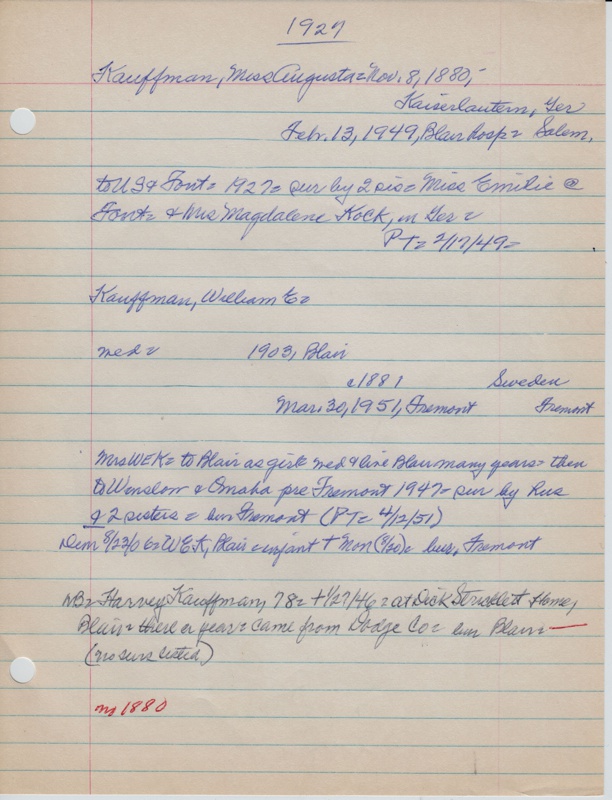 1927
Kauffman, Miss Augusta = Nov. 8, 1880,
Kaiserlautern, Ger
Febr. 13, 1949, Blair hosp = Salem,
to US & Font = 1927 = sur by 2 sis = Miss Emilie @
Font = & Mrs Magdalene Kock, in Ger =
PT = 2/17/49 =
Kauffman, William E =
med = 1903, Blair
c1881 Sweden
Mar. 30, 1951, Fremont Fremont
Mrs WEK = to Blair as girl = med & live Blair many years = then
to Winslow & Omaha pre Fremont 1947 = sur by Hus
& 2 sisters = bur Fremont (PT = 4/12/51)
Dem 8/23/06 = WEK, Blair = infant + Mon (8/20) = bur, Fremont
NB = Harvey Kauffman, 78 = + 1/27/46 = at Dick Stricklett Home,
Blair = there a year = came from Dodge Co = bur Blair =
(no surs listed)
m 1880